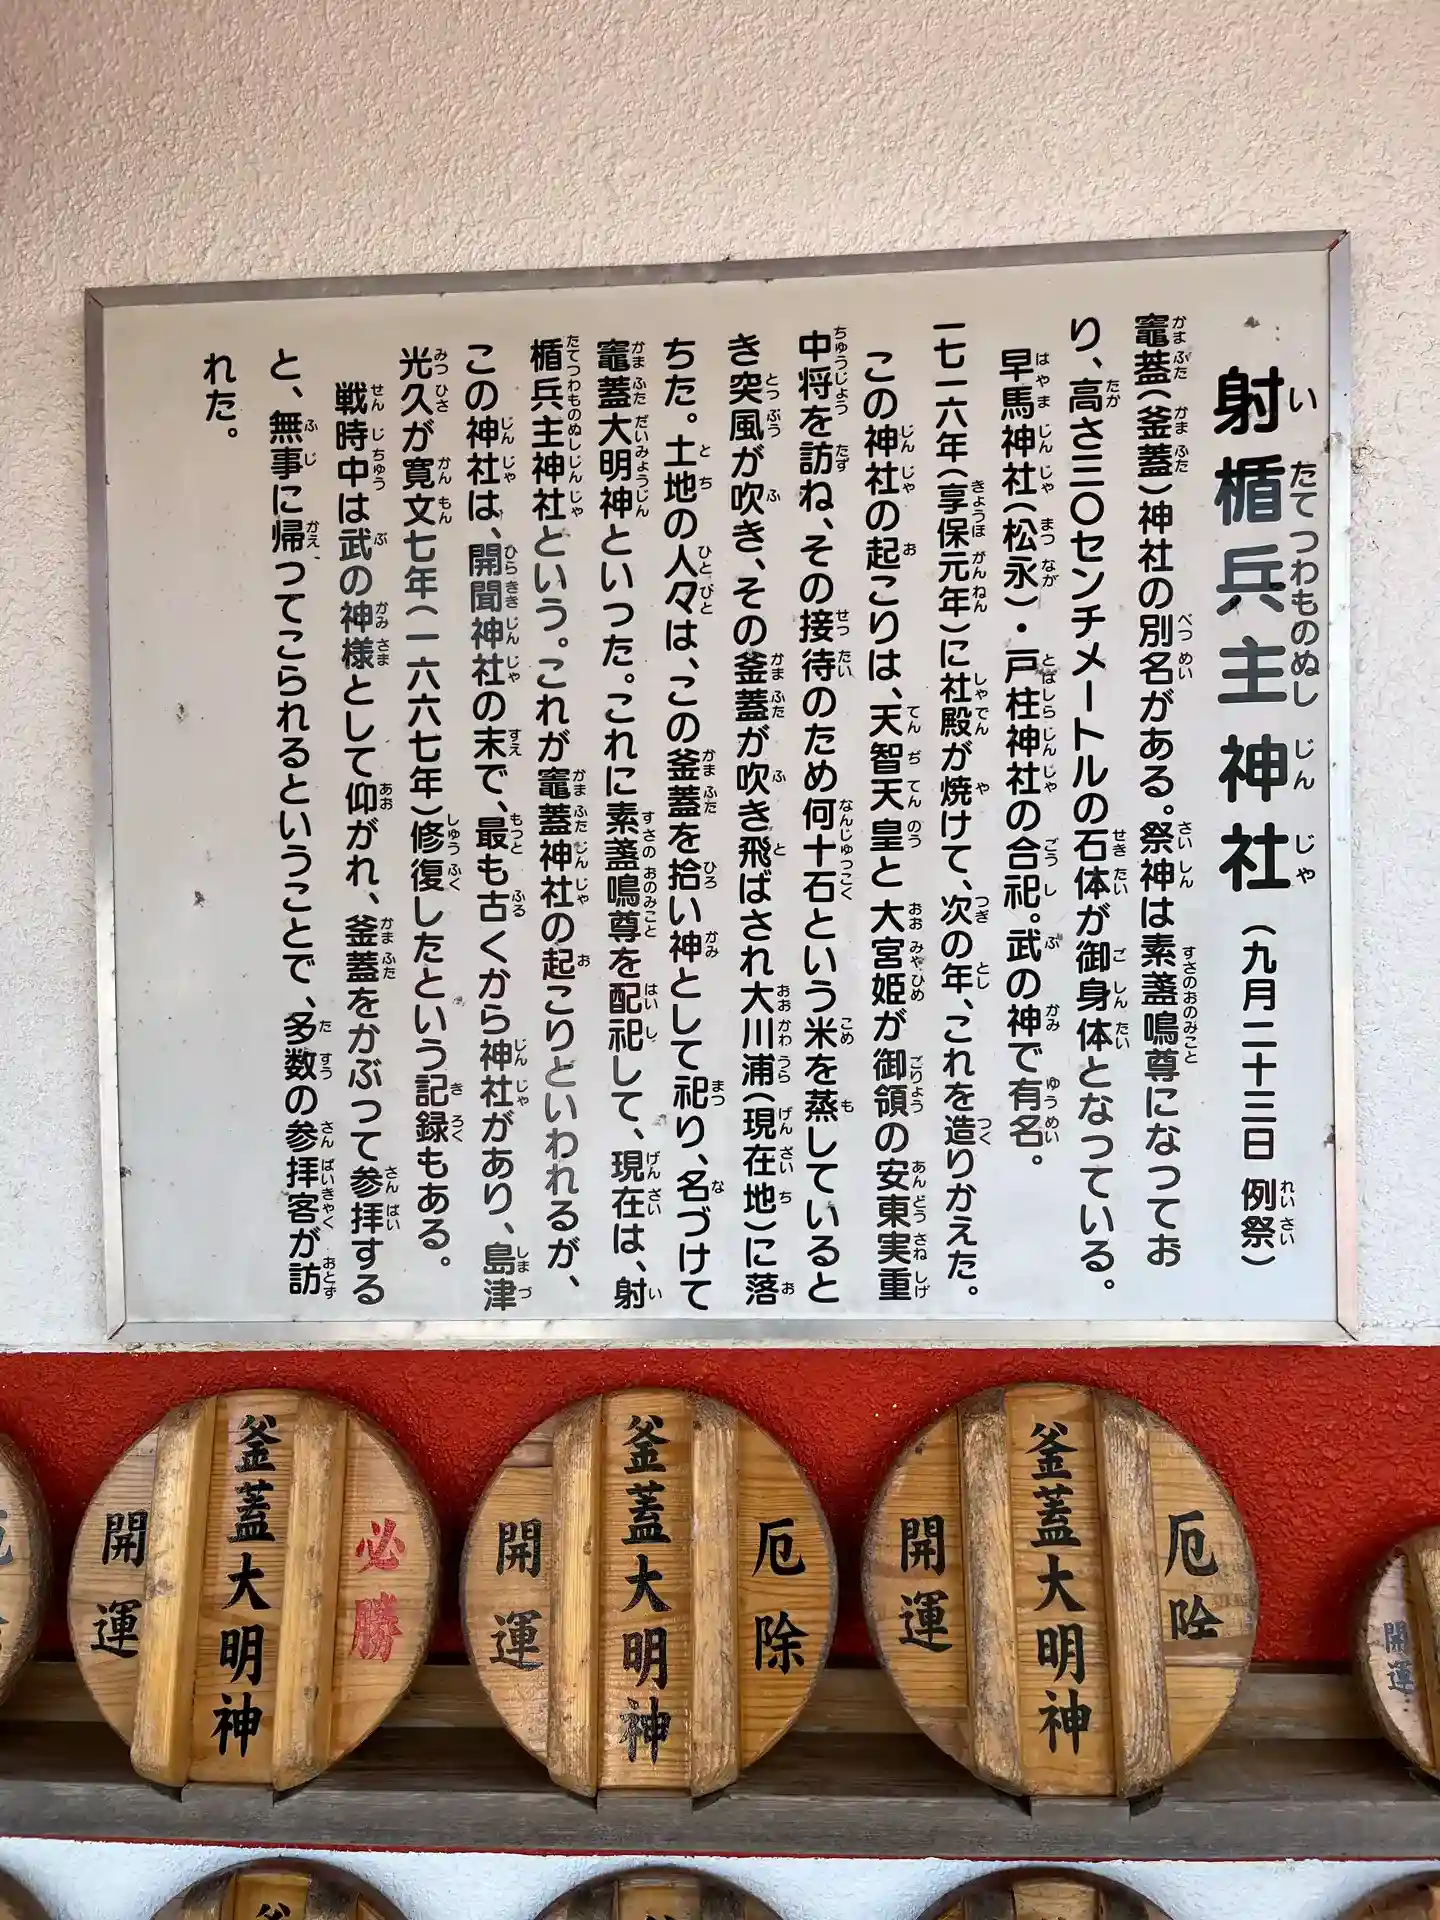 射楯兵主神社(九月二十三日 例祭)
いたてつわものぬしじんじゃ れいさい
竈蓋(釜蓋)神社の別名がある。祭神は素盞鳴尊になってお
り、高さ三〇センチメートルの石体が御身体となっている。
早馬神社(松永)・戸柱神社の合祀。武の神で有名。
一七一六年(享保元年)に社殿が焼けて、次の年、これを造りかえた。
この神社の起こりは、天智天皇と大宮姫が御領の安東実重
中将を訪ね、その接待のため何十石という米を蒸していると
き突風が吹き、その釜蓋が吹き飛ばされ大川浦(現在地)に落
ちた。土地の人々は、この釜蓋を拾い神として祀り、名づけて
竈蓋大明神といった。これに素盞鳴尊を配祀して、現在は、射
楯兵主神社という。これが竈蓋神社の起こりといわれるが、
この神社は、開聞神社の末で、最も古くから神社があり、島津
光久が寛文七年(一六六七年)修復したという記録もある。
戦時中は武の神様として仰がれ、釜蓋をかぶって参拝する
と、無事に帰ってこられるということで、多数の参拝客が訪
れた。
必勝
釜蓋大明神
開運
厄除
釜蓋大明神
開運
厄除
釜蓋大明神
開運
開運